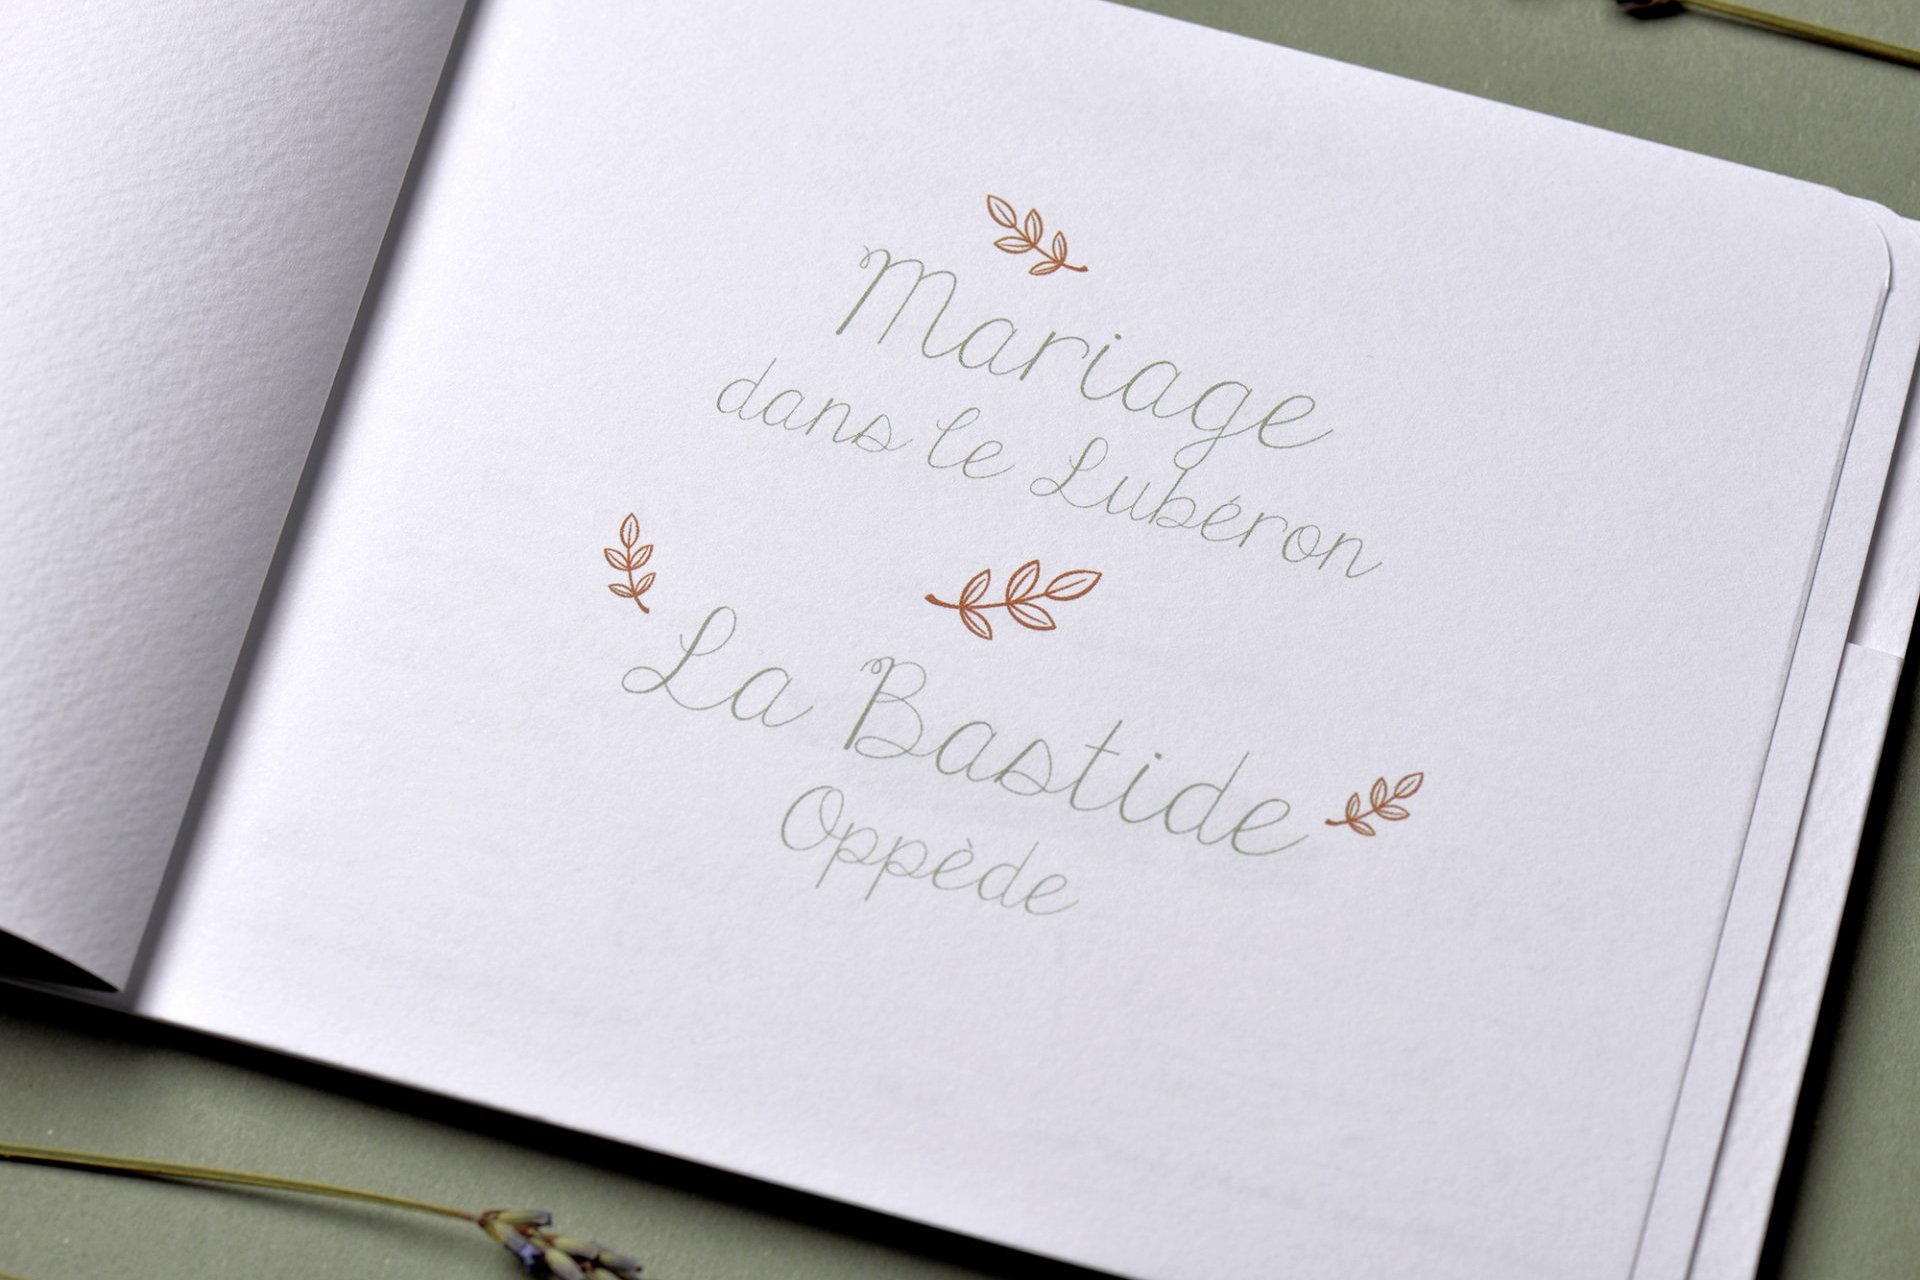 Mariage
dans le Lubéron
La Bastide
Oppède